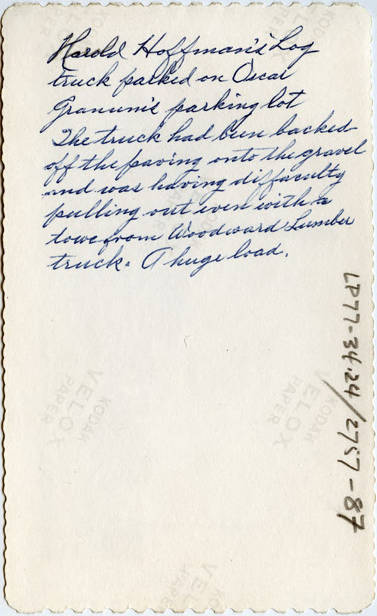 Harold Hoffman's Log
truck parked on Oscar
Granum's parking lot
The truck had been backed
off the paving onto the gravel
and was having diffaculty
pulling out even with a
towe from Woodward Lumber
truck. A huge load.
LP77-34.24/2757-87
KODAK
VELOX
PAPER
KODAK
VELOX
PAPER